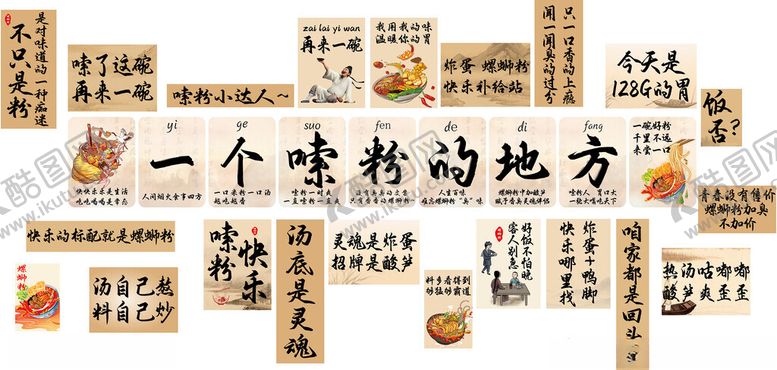 是对味道的一种痴迷
不只是粉
嗦了这碗
再来一碗
嗦粉小达人～
zai lai yi wan
再来一碗
我用我的味
温暖你的胃
炸蛋 螺蛳粉
快乐补给站
只一口香的上瘾
闻一闻臭的过分
今天是
128G的胃
饭否?
yi
ge
suo
fen
de
di
fang
一个嗦粉的地方
快快乐乐是生活
吃吃喝喝是常态
人间烟火食事四方
一口米粉一口汤
越吃越香
嗦粉一时爽
一直嗦一直爽
人生百味
难忘螺蛳粉“臭”味
螺蛳粉中加酸笋
赋予香臭灵魂伴侣
嗦粉人 胃口大
一绕火辣吃天下
一碗好粉
不远千里
来尝一口
青春没有售价
螺蛳粉加臭
不加价
快乐的标配就是螺蛳粉
螺蛳粉
汤自己熬
料自己炒
快乐
嗦粉
汤底是灵魂
灵魂是炸蛋
招牌是酸笋
料多看得到
够猛够霸道
好饭不怕晚
客人别急
炸蛋+鸭脚
快乐哪里找
咱家都是回头
热汤咕嘟嘟
酸笋爽歪歪